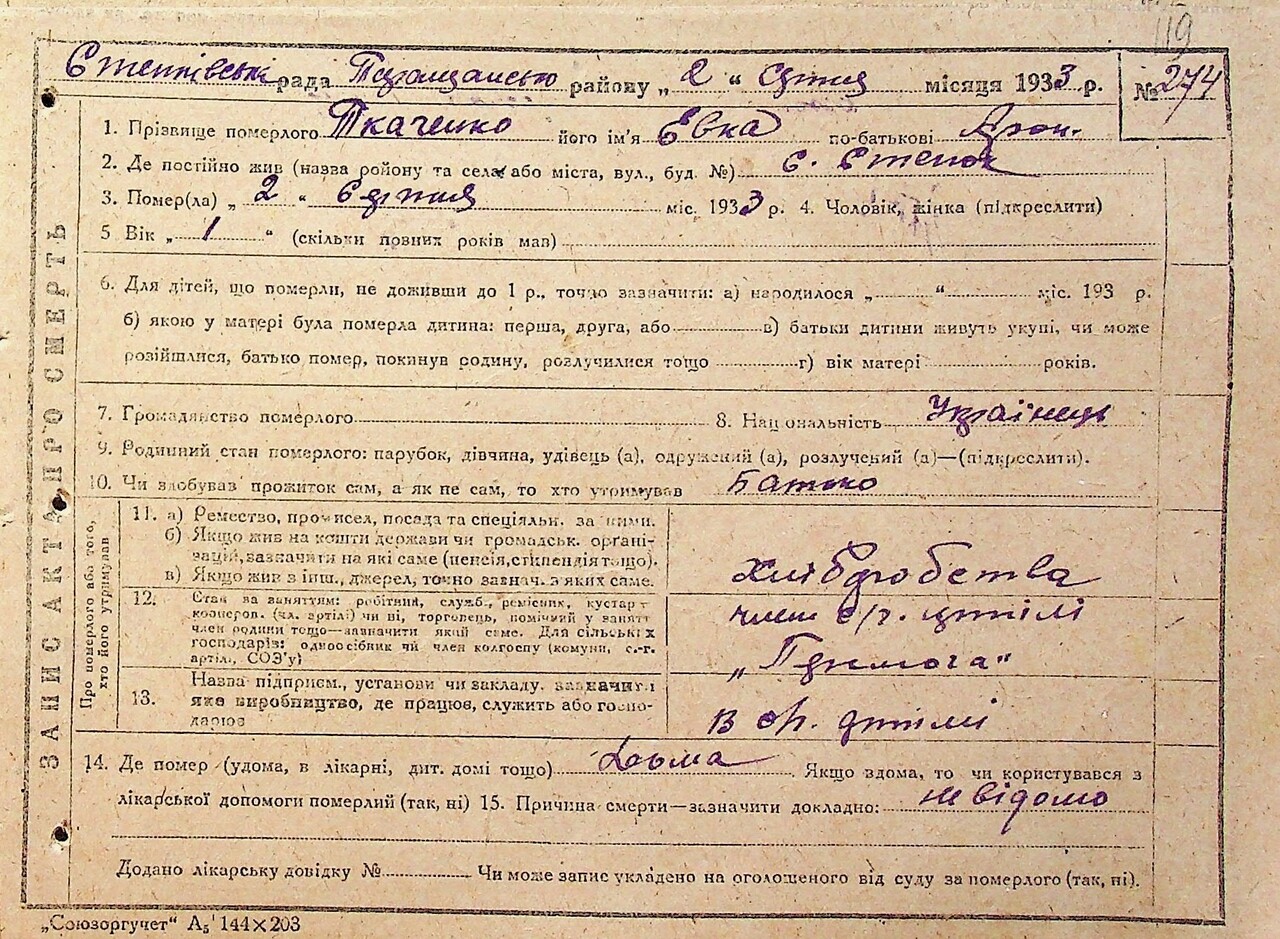 119
Степківська рада Таращанського району „ 2 “ Серпня місяця 1933 р. № 274
1. Прізвище померлого Ткаченко його ім'я Евка по-батькові
2. Де постійно жив (назва району та села або міста, вул., буд. №) с. Степок
3. Помер(ла) „ 2 “ Серпня міс. 1933 р. 4. Чоловік, жінка (підкреслити)
5 Вік „ 1 “ (скільки повних років мав)
6. Для дітей, що померли, не доживши до 1 р., точно зазначити: а) народилося „ “ міс. 193 р.
б) якою у матері була померла дитина: перша, друга, або в) батьки дитини живуть укупі, чи може
розійшлися, батько помер, покинув родину, розлучилися тощо г) вік матері років.
7. Громадянство померлого 8. Національність Українець
9. Родинний стан померлого: парубок, дівчина, удівець (а), одружений (а), розлучений (а)—(підкреслити).
10. Чи здобував прожиток сам, а як не сам, то хто утримував Батько
ЗАПИС АКТА ПРО СМЕРТЬ
Про померлого або того,
хто його утримував
11. а) Ремество, промисел, посада та спеціяльн. за ними.
б) Якщо жив на кошти держави чи громадськ. організацій, зазначити на які саме (пенсія, стипендія тощо).
в) Якщо жив з інш., джерел, точно зазнач. з яких саме.
Хліборобства
12. Стан за заняттям: робітний, служб., ремісник, кустар
кооперов. (чл. артілі) чи ні, торговець, помічний у занятт
член родини тощо—зазначити який саме. Для сільських
господарів: одноосібник чи член колгоспу (комуни, с.-г.
артіл., СОЗ'у)
член с/г. артілі
„Перемога“
13. Назва підприєм., установи чи закладу. зазначити
яке виробництво, де працює, служить або госпо-
дарює
в с/г. артілі
14. Де помер (удома, в лікарні, дит. домі тощо) Дома Якщо вдома, то чи користувався з
лікарської допомоги померлий (так, ні) 15. Причина смерти—зазначити докладно: не відомо
Додано лікарську довідку № Чи може запис укладено на оголошеного від суду за померлого (так, ні).
„Союзоргучет“ А₅ 144×203